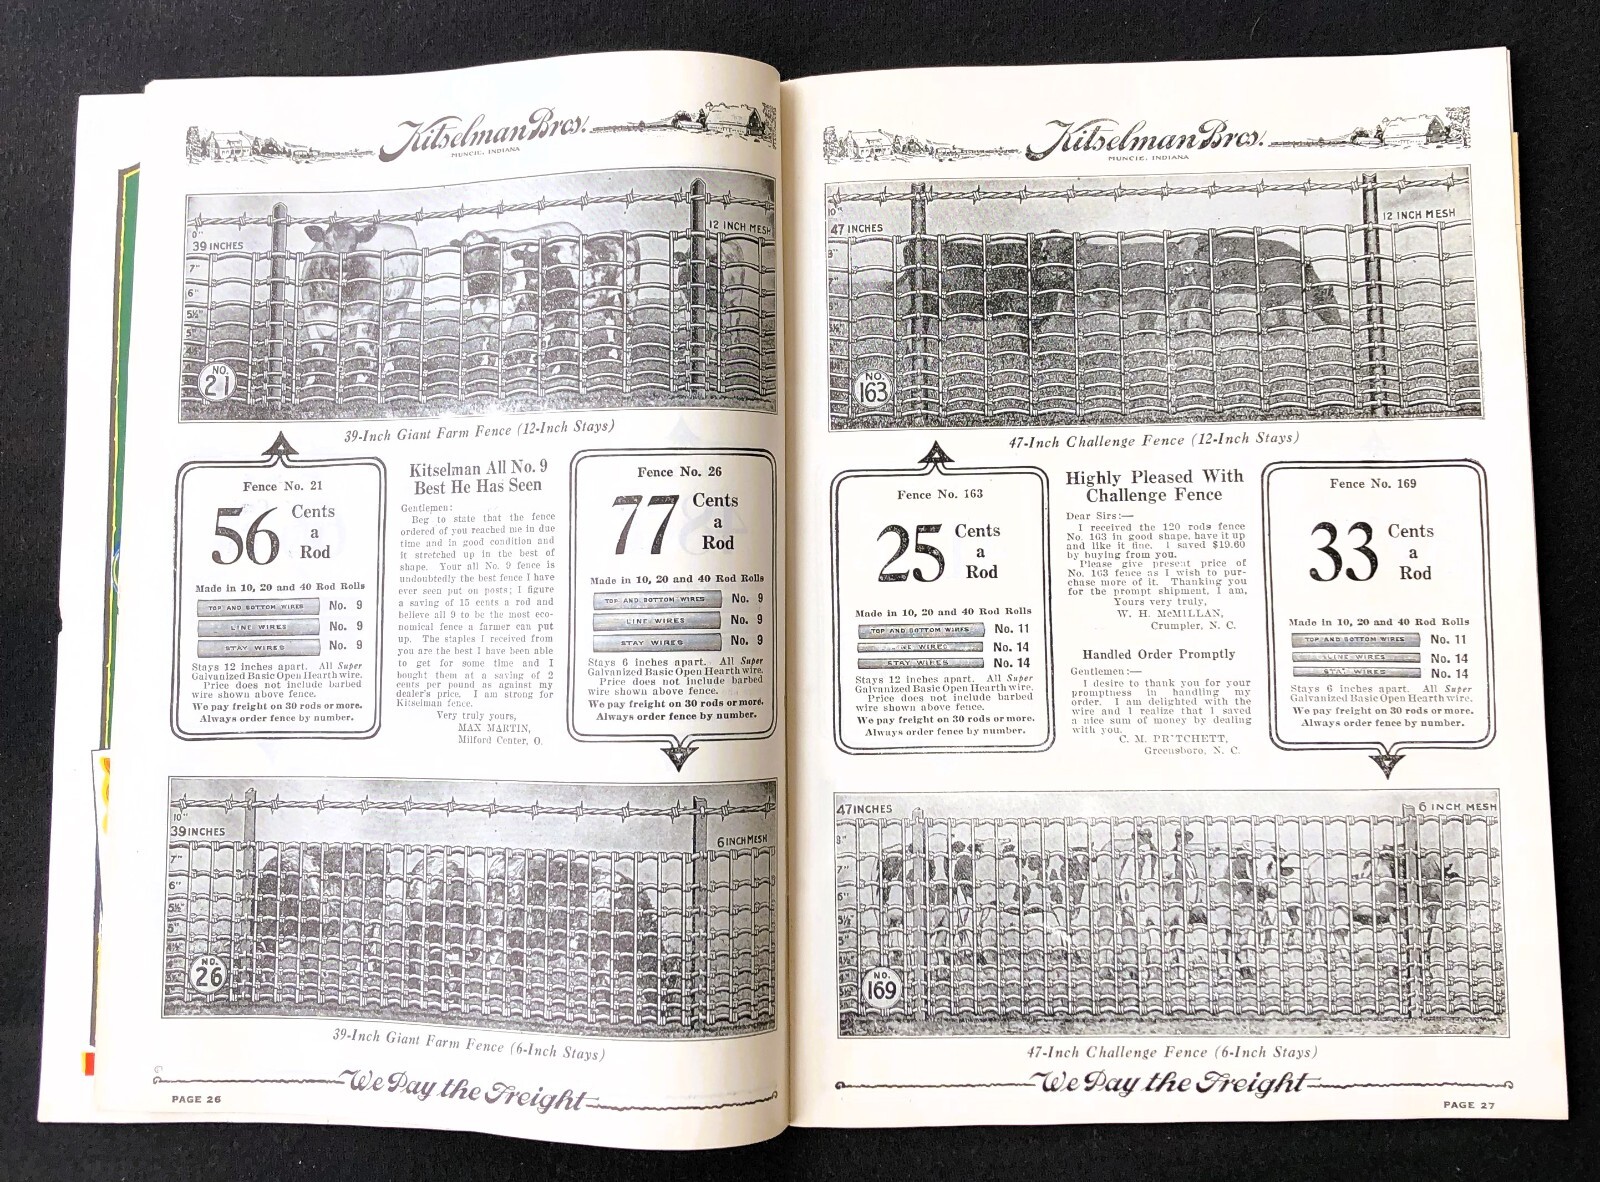 Kitselman Bros.
MUNCIE, INDIANA
39 INCHES
12 INCH MESH
7"
6"
5½"
5"
NO.
21
39-Inch Giant Farm Fence (12-Inch Stays)
Fence No. 21
56 Cents
a
Rod
Made in 10, 20 and 40 Rod Rolls
TOP AND BOTTOM WIRES No. 9
LINE WIRES No. 9
STAY WIRES No. 9
Stays 12 inches apart. All Super
Galvanized Basic Open Hearth wire.
Price does not include barbed
wire shown above fence.
We pay freight on 30 rods or more.
Always order fence by number.
Kitselman All No. 9
Best He Has Seen
Gentlemen:
Beg to state that the fence
ordered of you reached me in due
time and in good condition and
it stretched up in the best of
shape. Your all No. 9 fence is
undoubtedly the best fence I have
ever seen put on posts; I figure
a saving of 15 cents a rod and
believe all 9 to be the most eco-
nomical fence a farmer can put
up. The staples I received from
you are the best I have been able
to get for some time and I
bought them at a saving of 2
cents per pound as against my
dealer's price. I am strong for
Kitselman fence.
Very truly yours,
MAX MARTIN,
Milford Center, O.
Fence No. 26
77 Cents
a
Rod
Made in 10, 20 and 40 Rod Rolls
TOP AND BOTTOM WIRES No. 9
LINE WIRES No. 9
STAY WIRES No. 9
Stays 6 inches apart. All Super
Galvanized Basic Open Hearth wire.
Price does not include barbed
wire shown above fence.
We pay freight on 30 rods or more.
Always order fence by number.
10"
39 INCHES
6 INCH MESH
7"
6"
5½"
5"
4½"
NO.
26
39-Inch Giant Farm Fence (6-Inch Stays)
We Pay the Freight
PAGE 26
Kitselman Bros.
MUNCIE, INDIANA
10"
47 INCHES
12 INCH MESH
NO.
163
47-Inch Challenge Fence (12-Inch Stays)
Fence No. 163
25 Cents
a
Rod
Made in 10, 20 and 40 Rod Rolls
TOP AND BOTTOM WIRES No. 11
LINE WIRES No. 14
STAY WIRES No. 14
Stays 12 inches apart. All Super
Galvanized Basic Open Hearth wire.
Price does not include barbed
wire shown above fence.
We pay freight on 30 rods or more.
Always order fence by number.
Highly Pleased With
Challenge Fence
Dear Sirs:—
I received the 120 rods fence
No. 163 in good shape, have it up
and like it fine. I saved $19.60
by buying from you.
Please give present price of
No. 163 fence as I wish to pur-
chase more of it. Thanking you
for the prompt shipment, I am,
Yours very truly,
W. H. McMILLAN,
Crumpler, N. C.
Handled Order Promptly
Gentlemen:—
I desire to thank you for your
promptness in handling my
order. I am delighted with the
wire and I realize that I saved
a nice sum of money by dealing
with you.
C. M. PRITCHETT,
Greensboro, N. C.
Fence No. 169
33 Cents
a
Rod
Made in 10, 20 and 40 Rod Rolls
TOP AND BOTTOM WIRES No. 11
LINE WIRES No. 14
STAY WIRES No. 14
Stays 6 inches apart. All Super
Galvanized Basic Open Hearth wire.
We pay freight on 30 rods or more.
Always order fence by number.
47 INCHES
6 INCH MESH
8"
7"
6"
5½"
5"
NO.
169
47-Inch Challenge Fence (6-Inch Stays)
We Pay the Freight
PAGE 27